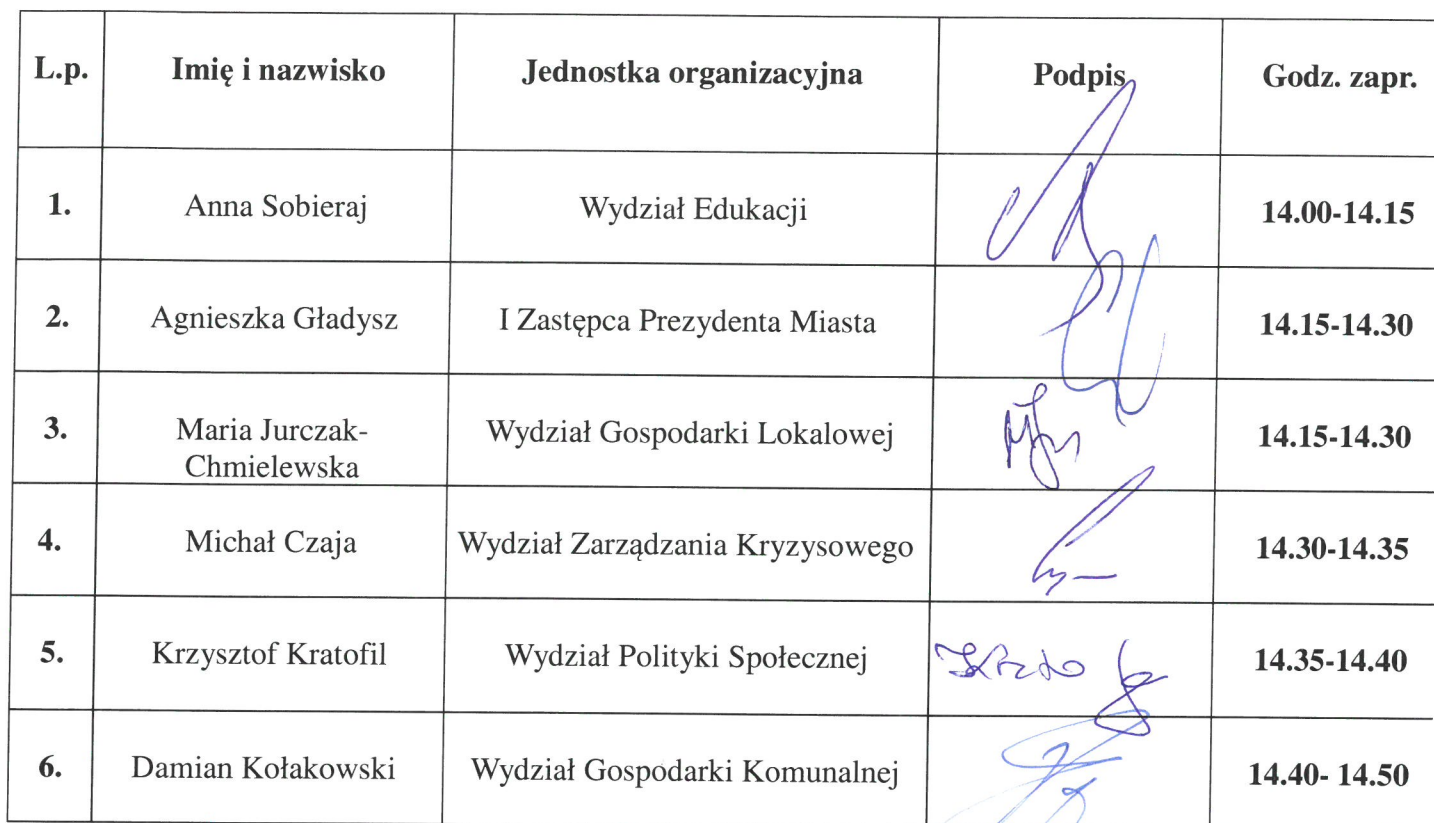 L.p. Imię i nazwisko Jednostka organizacyjna Podpis Godz. zapr.
1. Anna Sobieraj Wydział Edukacji 14.00-14.15
2. Agnieszka Gładysz I Zastępca Prezydenta Miasta 14.15-14.30
3. Maria Jurczak- Wydział Gospodarki Lokalowej 14.15-14.30
Chmielewska
4. Michał Czaja Wydział Zarządzania Kryzysowego 14.30-14.35
5. Krzysztof Kratofil Wydział Polityki Społecznej 14.35-14.40
6. Damian Kołakowski Wydział Gospodarki Komunalnej 14.40- 14.50